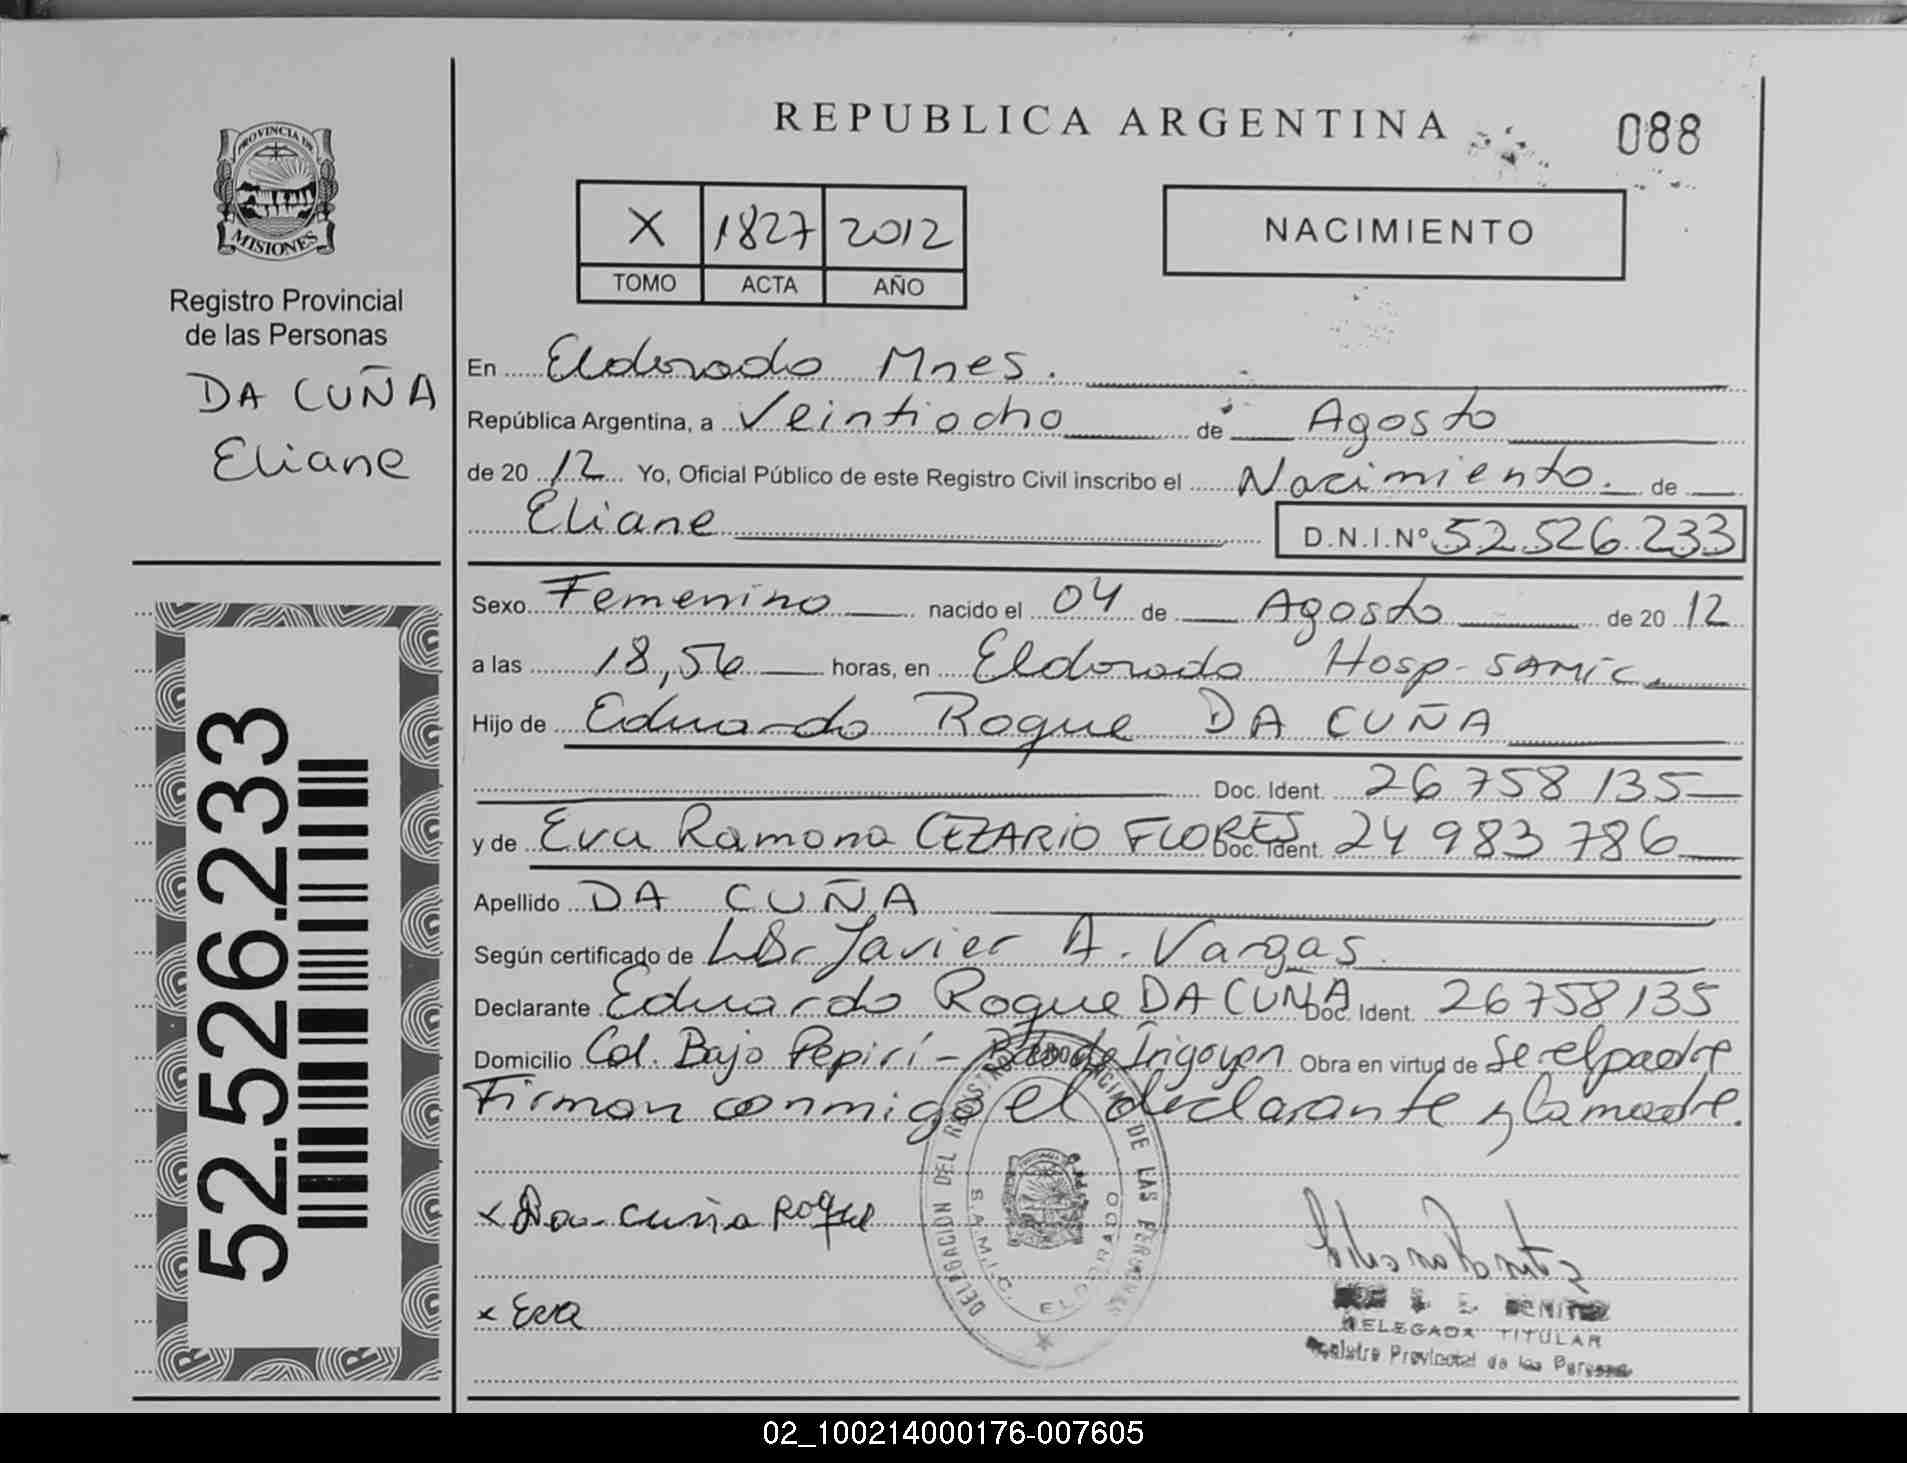 REPUBLICA ARGENTINA
088
PROVINCIA DE
MISIONES
Registro Provincial
de las Personas
DA CUÑA
Eliane
X 1827 2012
TOMO ACTA AÑO
NACIMIENTO
En Eldorado Mnes.
República Argentina, a Veintiocho de Agosto
de 20 12 Yo, Oficial Público de este Registro Civil inscribo el Nacimiento. de
Eliane D.N.I.Nº 52.526.233
Sexo Femenino nacido el 04 de Agosto de 20 12
a las 18,56 horas, en Eldorado Hosp-SAMIC.
Hijo de Eduardo Roque DA CUÑA
Doc. Ident. 26 758 135
y de Eva Ramona CEZARIO FLORES Doc. Ident. 24 983 786
Apellido DA CUÑA
Según certificado de Dr Javier A. Vargas.
Declarante Eduardo Roque DA CUÑA Doc. Ident. 26758135
Domicilio Col. Bajo Pepirí - Bdo de Irigoyen Obra en virtud de Ser el padre
Firman conmigo el declarante y la madre.
52.526.233
x Da cuña Roque
x Eva
DELEGACION DEL REGISTRO PROVINCIAL DE LAS PERSONAS
S.A.M.I.C. ELDORADO
BENITEZ
DELEGADA TITULAR
Registro Provincial de las Personas
02_100214000176-007605